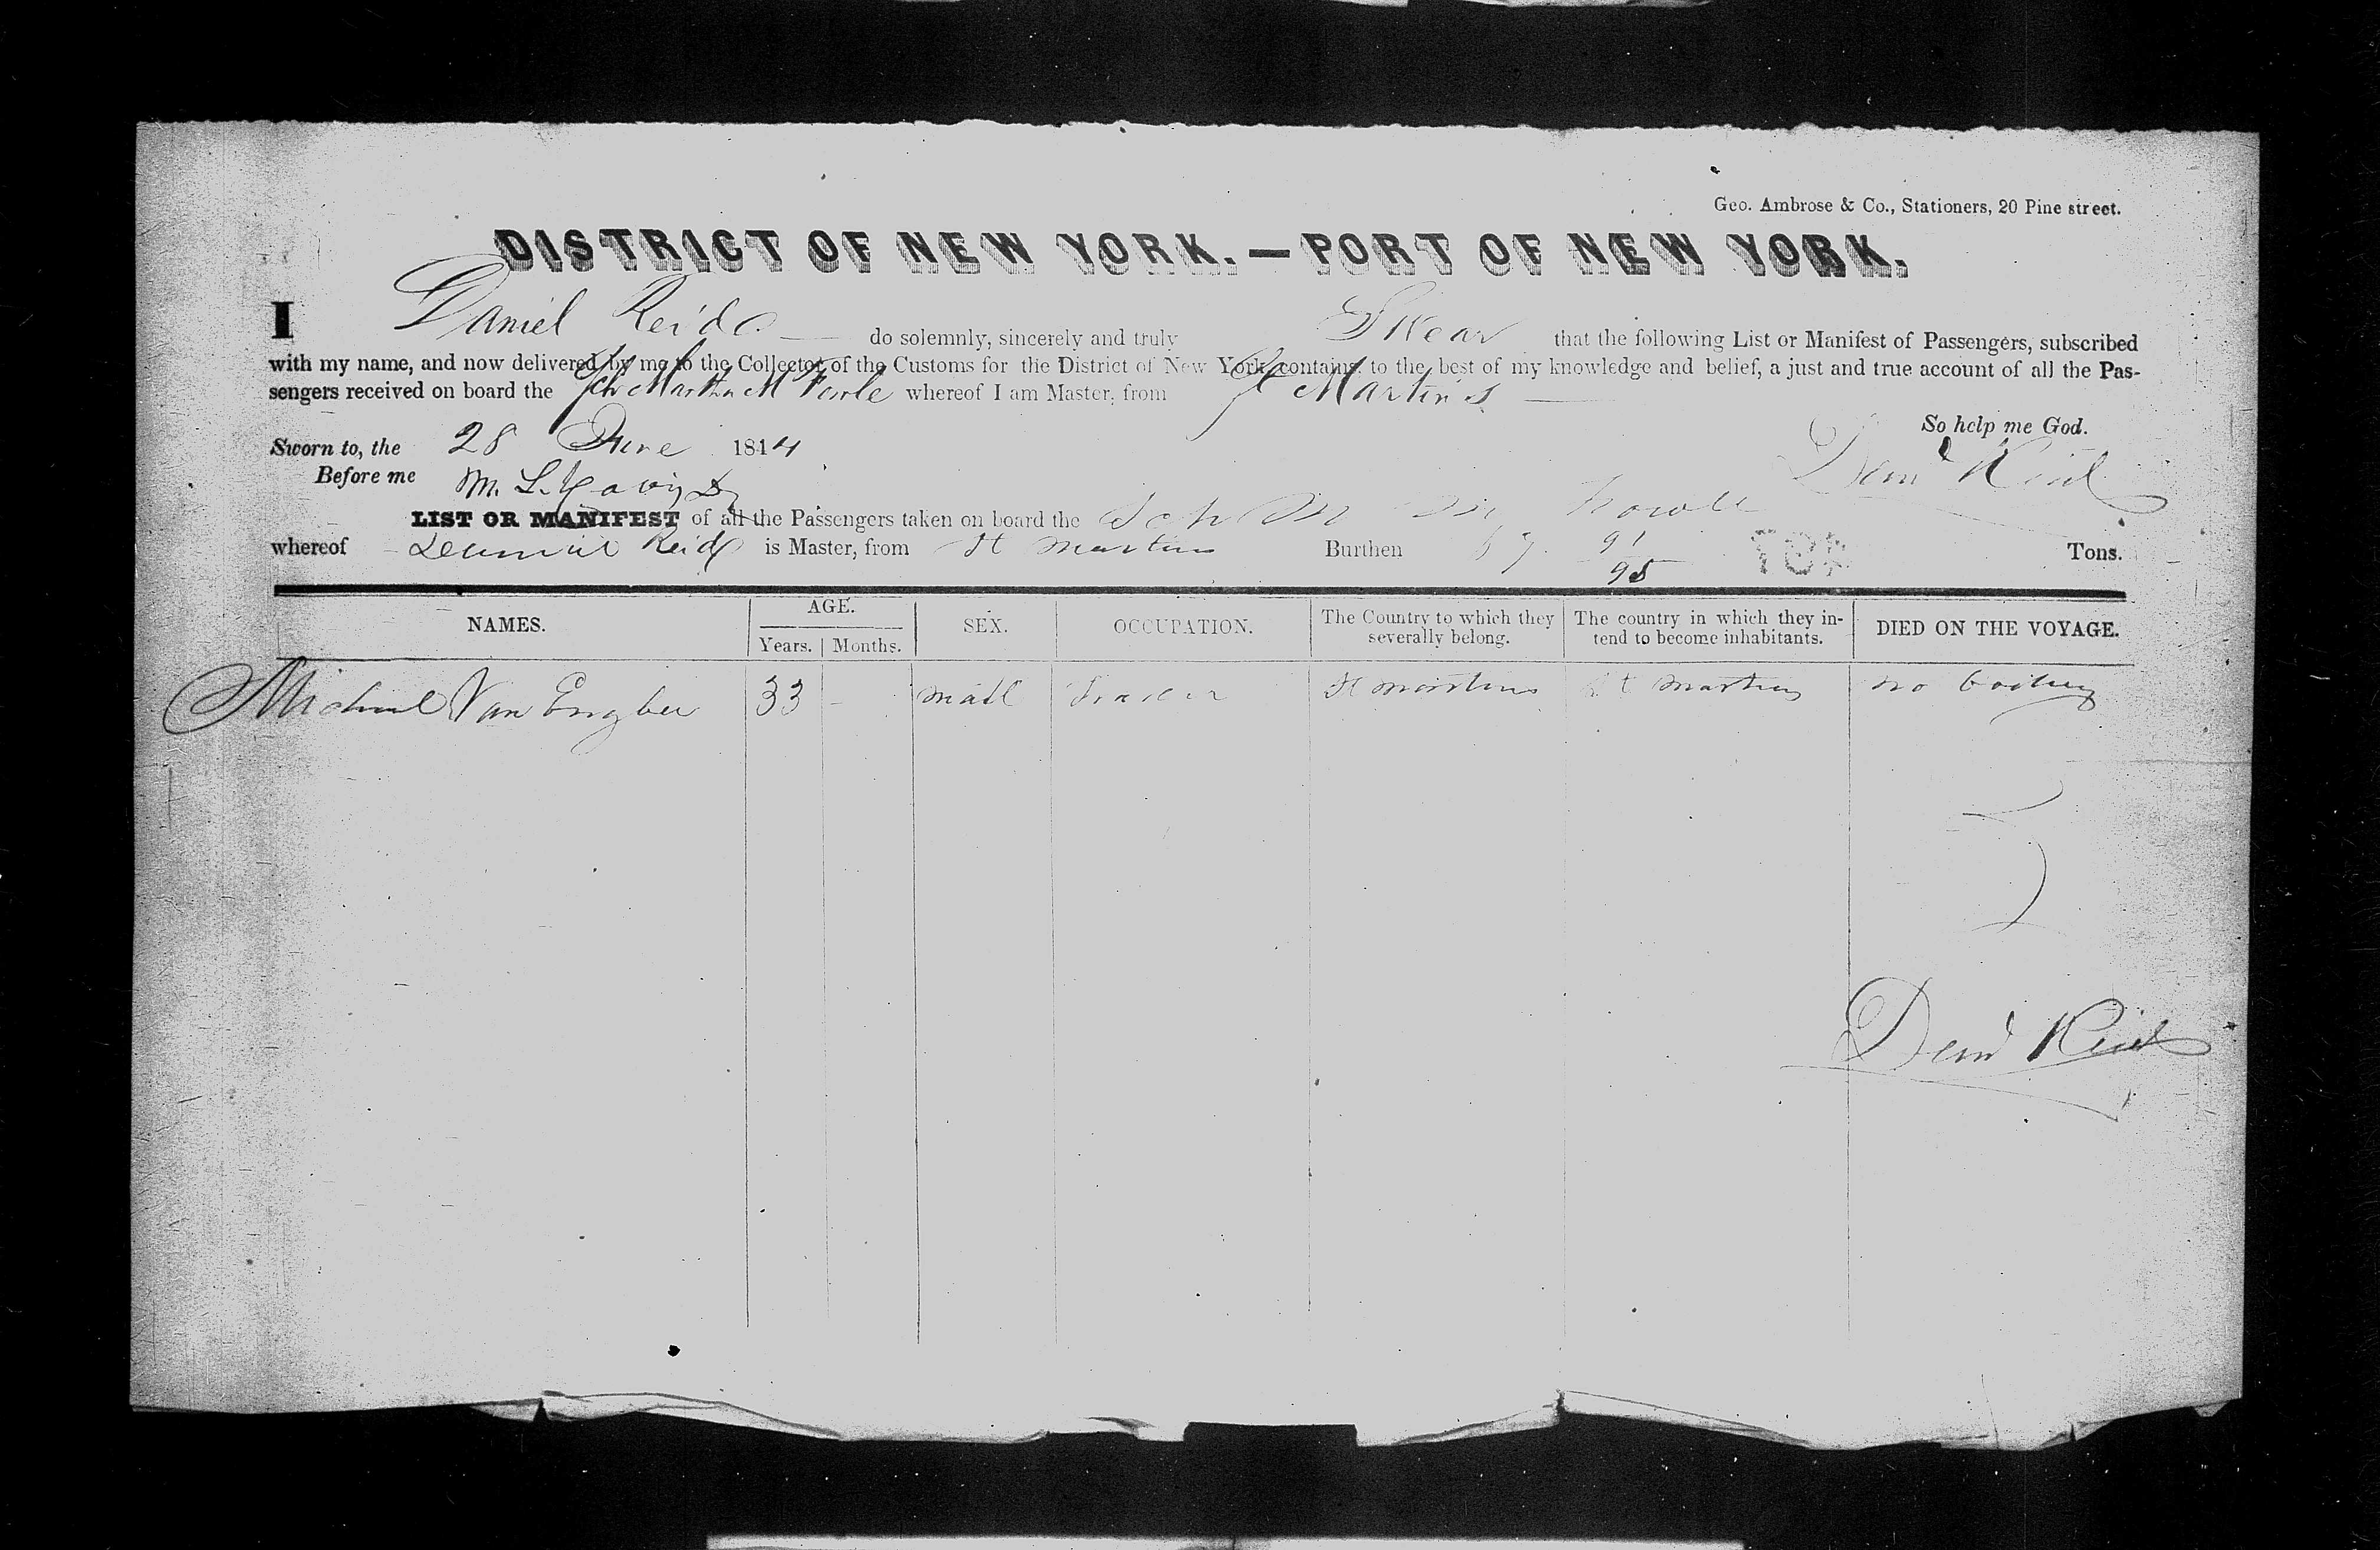 Geo. Ambrose & Co., Stationers, 20 Pine street.
DISTRICT OF NEW YORK.—PORT OF NEW YORK.
I Daniel Reid do solemnly, sincerely and truly Swear that the following List or Manifest of Passengers, subscribed
with my name, and now delivered by me to the Collector of the Customs for the District of New York, contains, to the best of my knowledge and belief, a just and true account of all the Pas-
sengers received on board the Sch Martha M whereof I am Master, from St Martins
So help me God.
Sworn to, the 28 June 1844
Reid
Before me M. L.
LIST OR MANIFEST of all the Passengers taken on board the Sch
whereof Reid is Master, from St Martins Burthen 91/95 Tons.
NAMES. AGE. SEX. OCCUPATION. The Country to which they severally belong. The country in which they in- DIED ON THE VOYAGE.
Years. Months. tend to become inhabitants.
Michael Van 33 - male St Martins St Martins no
Reid